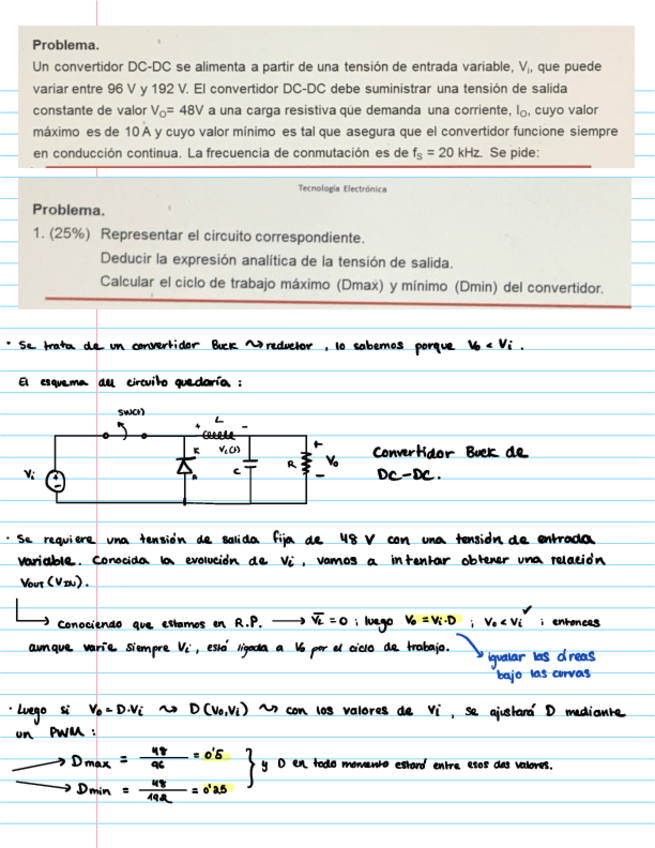 Problema.
Un convertidor DC-DC se alimenta a partir de una tensión de entrada variable, Vᵢ, que puede
variar entre 96 V y 192 V. El convertidor DC-DC debe suministrar una tensión de salida
constante de valor V₀= 48V a una carga resistiva que demanda una corriente, I₀, cuyo valor
máximo es de 10 A y cuyo valor mínimo es tal que asegura que el convertidor funcione siempre
en conducción continua. La frecuencia de conmutación es de fₛ = 20 kHz. Se pide:
Tecnología Electrónica
Problema.
1. (25%) Representar el circuito correspondiente.
Deducir la expresión analítica de la tensión de salida.
Calcular el ciclo de trabajo máximo (Dmax) y mínimo (Dmin) del convertidor.
· Se trata de un convertidor Buck ⤳ reductor, lo sabemos porque V₀ < Vᵢ.
El esquema del circuito quedaría:
SW(1)
+ L -
K V_L(t)
Vᵢ A C R + V₀ -
Convertidor Buck de
DC-DC.
· Se requiere una tensión de salida fija de 48 V con una tensión de entrada
variable. Conocida la evolución de Vᵢ, vamos a intentar obtener una relación
Vout (Vin).
→ Conociendo que estamos en R.P. → V̅_L = 0; luego V₀ = Vᵢ·D; V₀ < Vᵢ ✓; entonces
aunque varíe siempre Vᵢ, está ligada a V₀ por el ciclo de trabajo.
igualar las áreas
bajo las curvas
· Luego si V₀ = D·Vᵢ ⤳ D(V₀,Vᵢ) ⤳ con los valores de Vᵢ, se ajustará D mediante
un PWM:
→ Dmax = 48/96 = 0'5
} y D en todo momento estará entre esos dos valores.
→ Dmin = 48/192 = 0'25